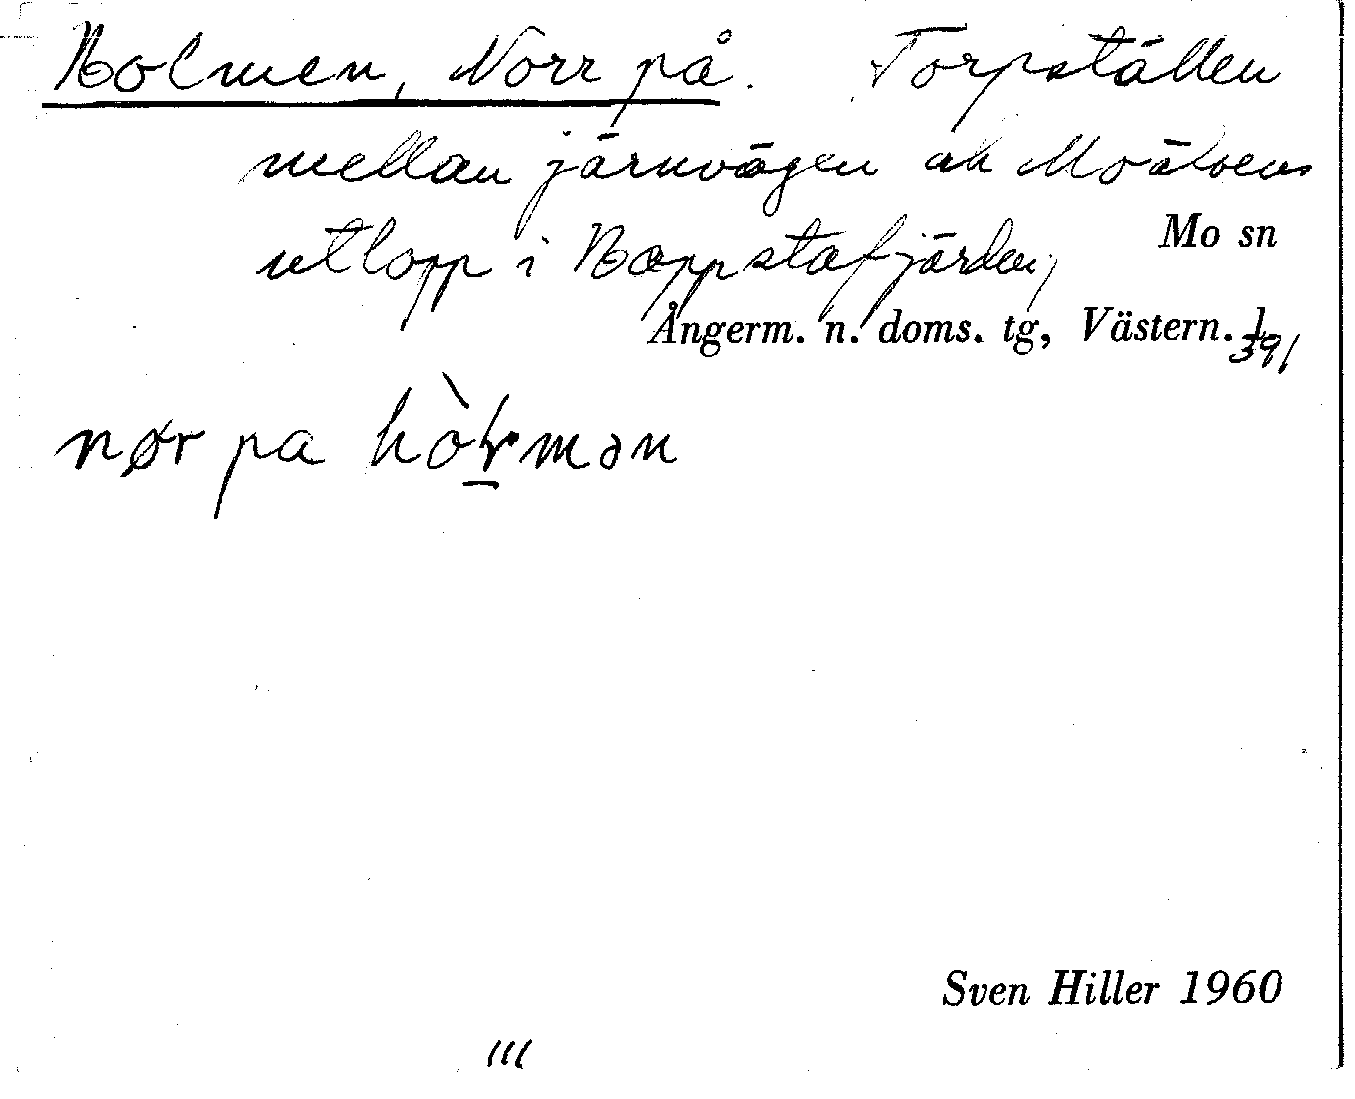 Holmen, Norr på. Torpställen
mellan järnvägen ah Moälvens
utlopp i Happstafjärden,
Mo sn
Ångerm. n. doms. tg, Västern. l.
391
nør pa hòɭmən
Sven Hiller 1960